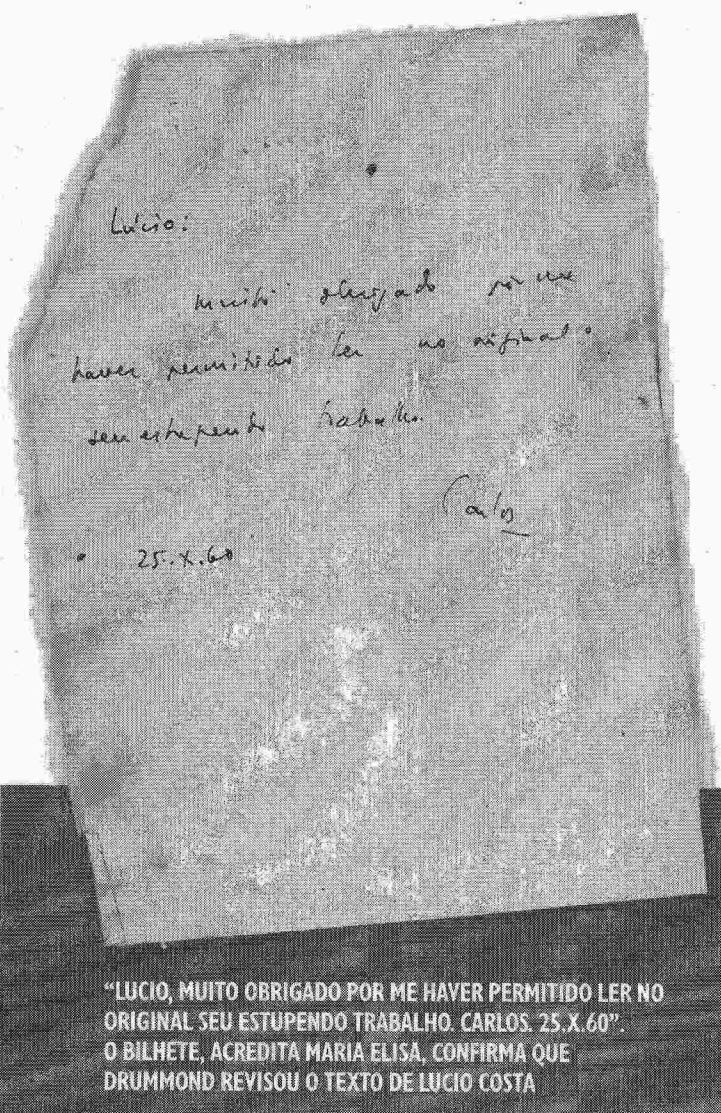 Lúcio:
muito obrigado por me
haver permitido ler no original
seu estupendo trabalho.
Carlos
25.X.60
“LUCIO, MUITO OBRIGADO POR ME HAVER PERMITIDO LER NO
ORIGINAL SEU ESTUPENDO TRABALHO. CARLOS. 25.X.60”.
O BILHETE, ACREDITA MARIA ELISA, CONFIRMA QUE
DRUMMOND REVISOU O TEXTO DE LUCIO COSTA